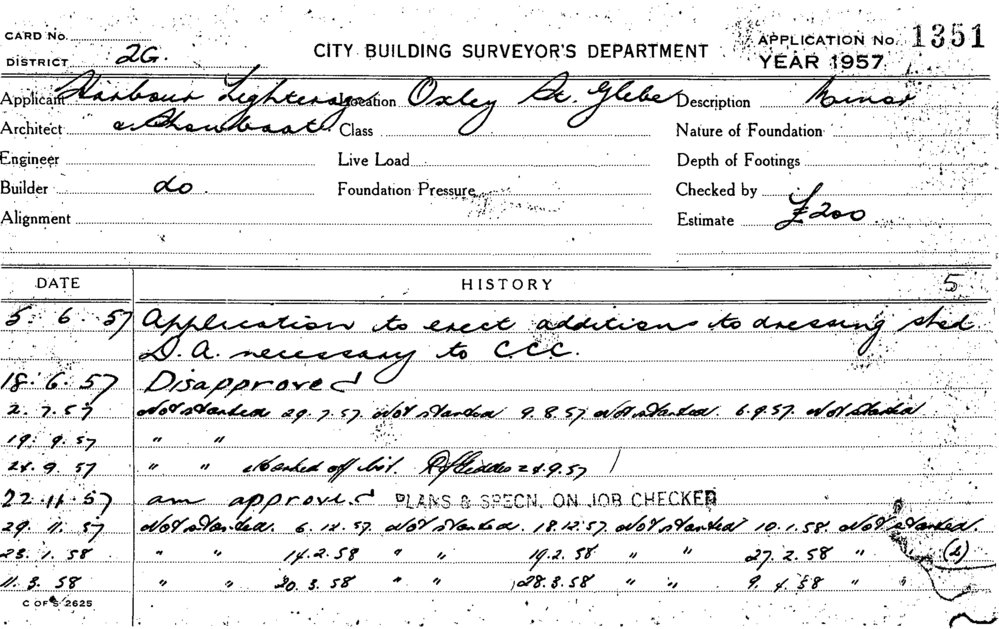 CARD No.
DISTRICT 2G.
CITY BUILDING SURVEYOR'S DEPARTMENT
APPLICATION No. 1351
YEAR 1957
Applicant Harbour Lighterage Location Oxley St. Glebe Description Minor
Architect & Showboats Class Nature of Foundation
Engineer Live Load Depth of Footings
Builder do Foundation Pressure Checked by
Alignment Estimate £200
DATE HISTORY 5
5. 6. 57 Application to erect additions to dressing shed.
D.A. necessary to CCC.
18. 6. 57 Disapproved
2. 7. 57 Not started 29.7.57. Not started 9.8.57 Not started. 6.9.57. Not started
19. 9. 57 " "
24. 9. 57 " " Marked off list. 24.9.57
22. 11. 57 am approved PLANS & SPECN. ON JOB CHECKED
29. 11. 57 Not started. 6.12.57. Not started. 18.12.57. Not started 10.1.58. Not started.
23. 1. 58 " " 14.2.58 " " 19.2.58 " " 27.2.58 " "
11. 3. 58 " " 20.3.58 " " 28.3.58 " " 9.4.58 " "
C OF S 2625